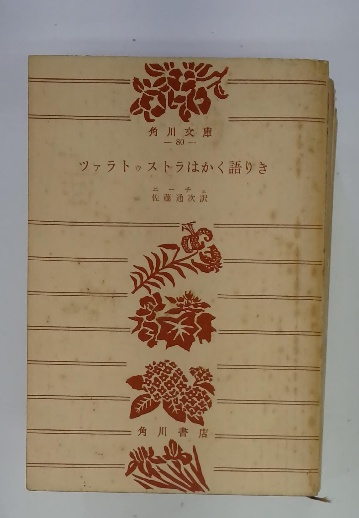 角川文庫
— 80 —
ツァラトゥストラはかく語りき
ニーチェ
佐藤通次訳
角川書店